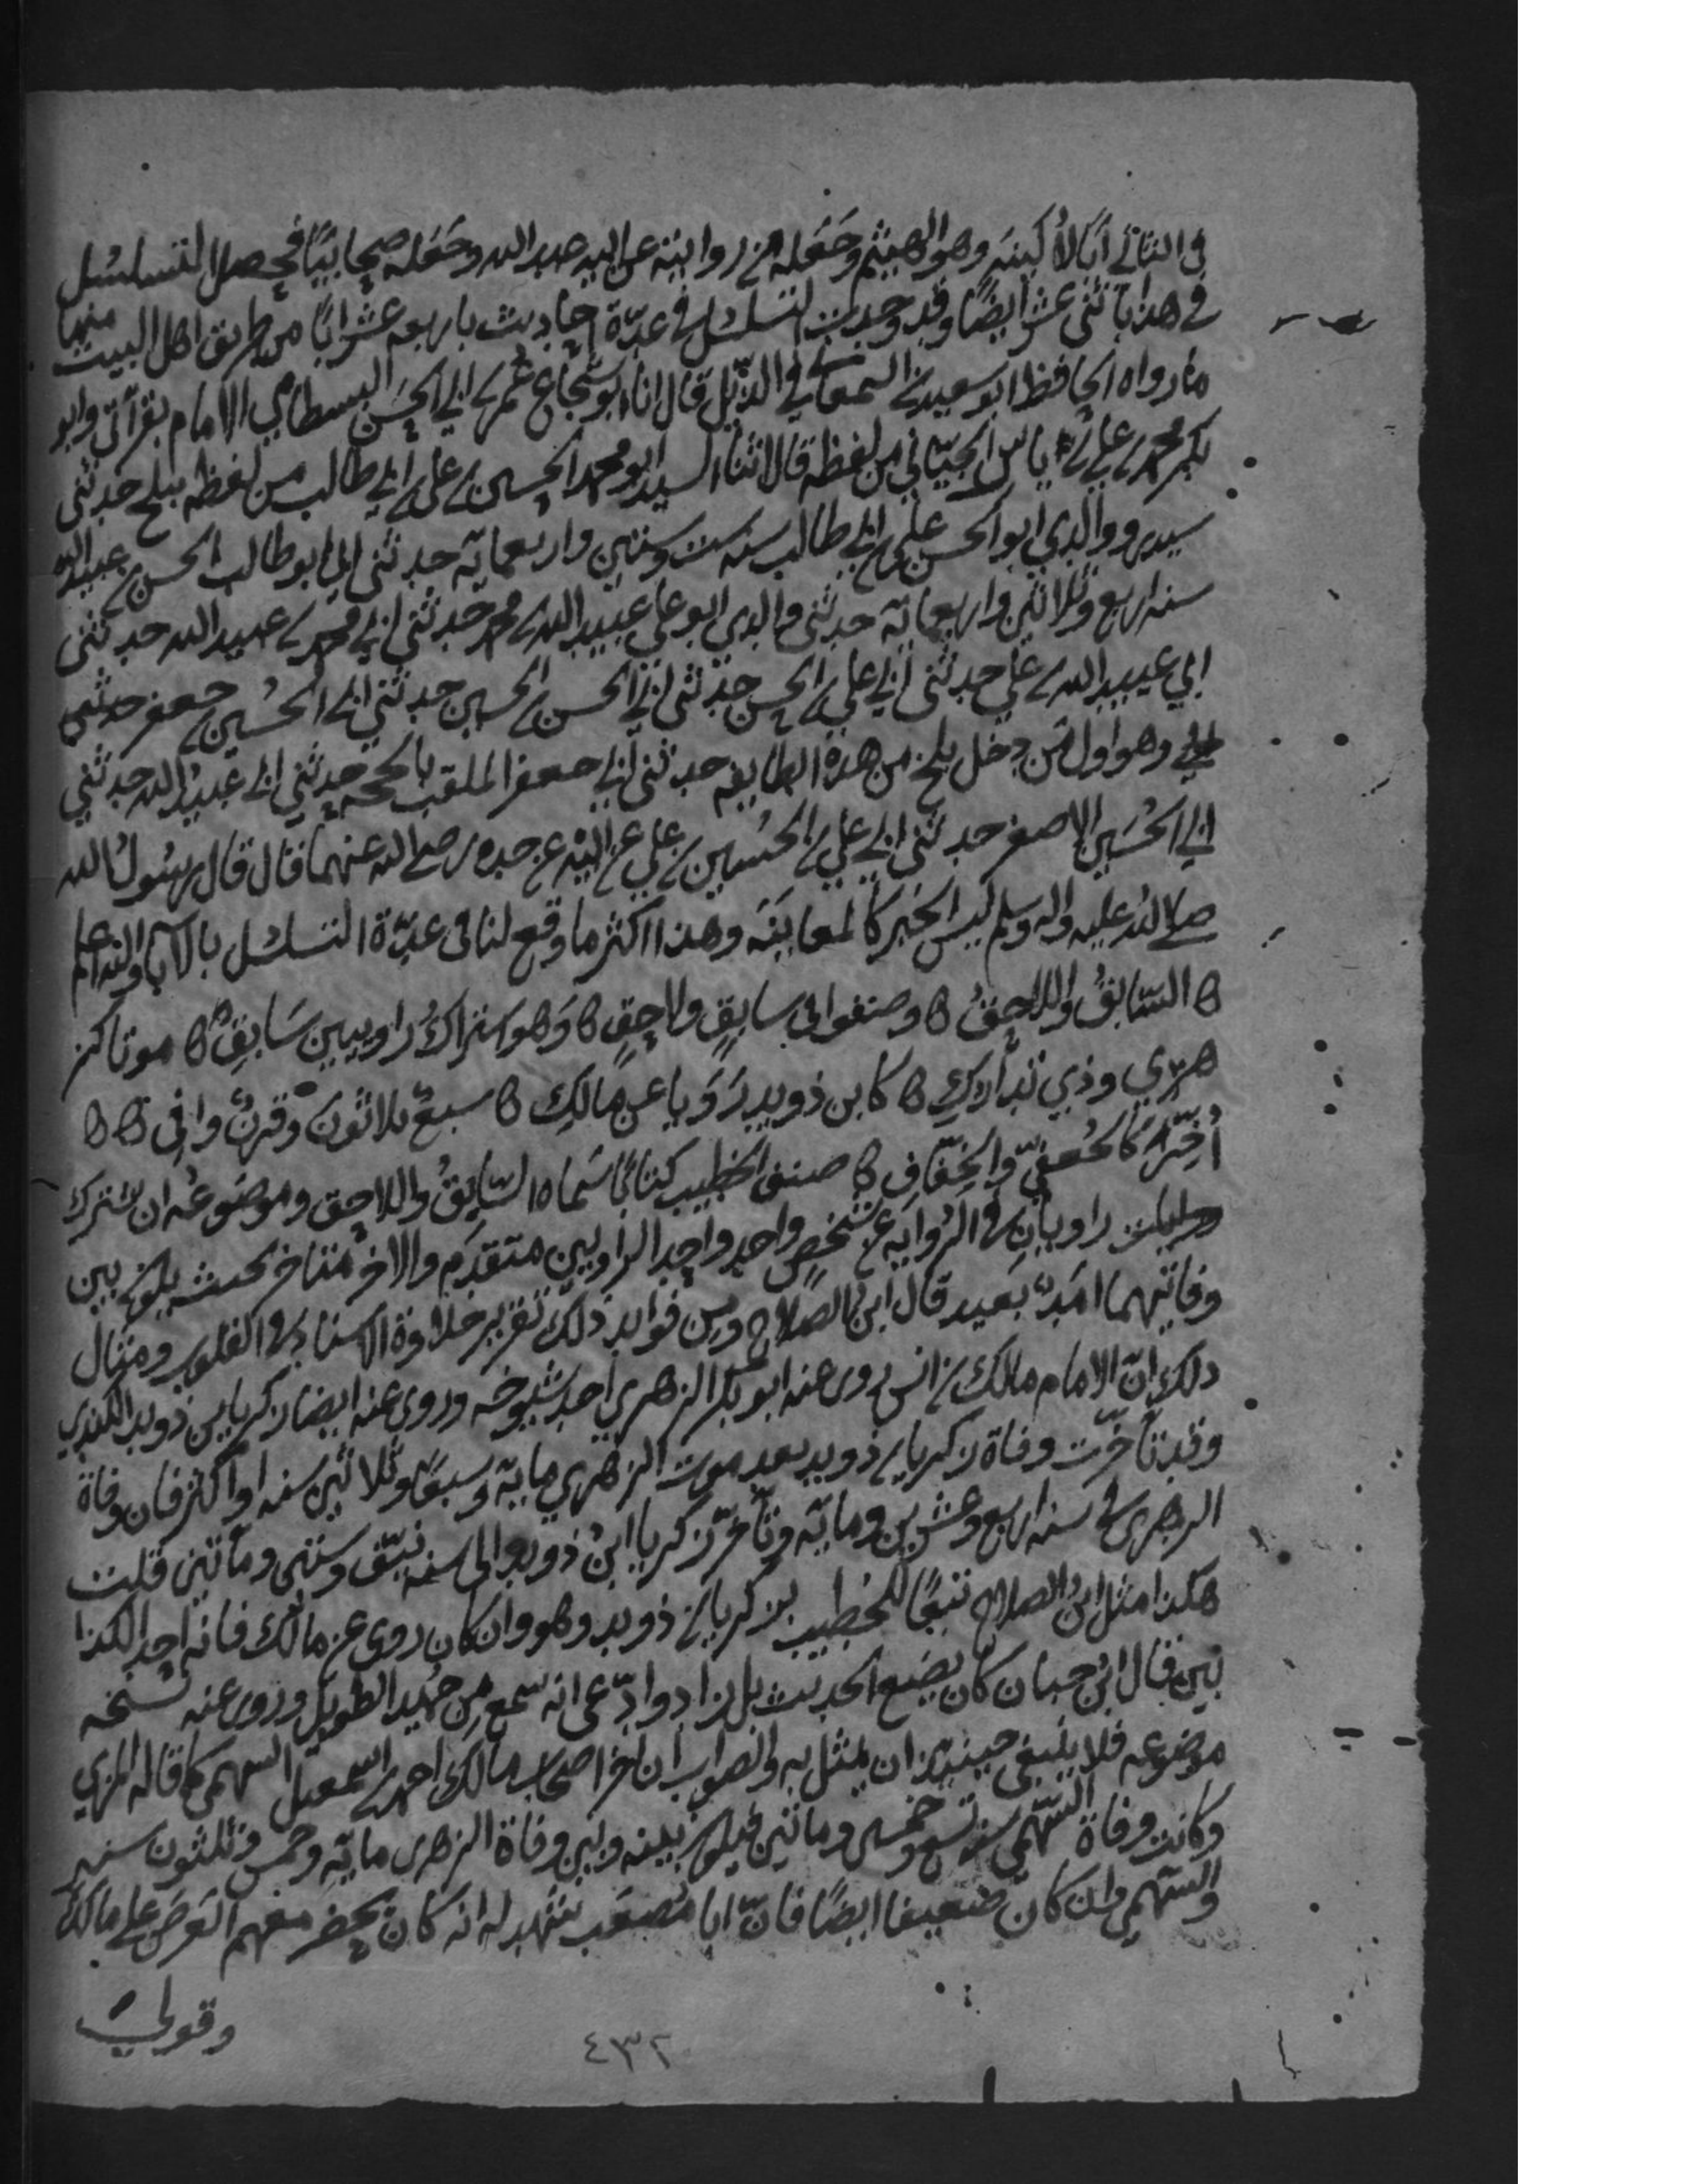 في الثاني ابا لاكينه وهو الهيثم وجعله من روايته عن ابيه عبد الله وجعله صحابيا فحصل التسلسل
في هذا باثنى عشر ايضا وقد وجدت التسلسل في عدة احاديث باربعة عشر ابا من طريق اهل البيت منها
ما رواه الحافظ ابو سعيد بن السمعاني في الذيل قال انا ابو شجاع عمر بن ابي الحسن البسطامي الامام بقرآتي وابو
بكر محمد بن علي بن ياسر الجياني من لفظه قالا ثنا السيد ابو محمد الحسين بن علي بن ابي طالب من لفظه ببلخ حدثني
سيدي ووالدي ابو الحسن علي بن ابي طالب سنه ست وستين واربعمايه حدثني ابي ابو طالب الحسن بن عبيد الله
سنه اربع وثلاثين واربعمايه حدثني والدي ابو علي عبيد الله بن محمد حدثني ابي محمد بن عبيد الله حدثني
ابي عبيد الله بن علي حدثني ابي علي بن الحسن حدثني ابي الحسن بن الحسين حدثني ابي الحسين بن جعفر حدثني
ابي وهو اول من دخل بلخ من هذه الطايفه حدثني ابي جعفر الملقب بالحجه حدثني ابي عبيد الله حدثني
ابي الحسين الاصغر حدثني ابي علي بن الحسين بن علي عن ابيه عن جده رضي الله عنهما قال قال رسول الله
صلى الله عليه واله وسلم ليس الخبر كالمعاينه وهذا اكثر ما وقع لنا في عدة التسلسل بالابآ والله اعلم
ه السابق واللاحق ه وصنفوا في سابق ولاحق ه وهو اشتراك راويين سابق ه موتا كز
هري وذي تدارك ه كابن ذويد رويا عن مالك ه سبع ثلاثون وقرن وافي ه ه
اخر كالجعفي والخفاف ه صنف الخطيب كتابا سماه السابق واللاحق وموضوعه ان يشترك
راويان في الروايه عن شخص واحد واحد الراويين متقدم والاخر متاخر بحيث يكون بين
وفاتيهما امد بعيد قال ابن الصلاح ومن فوايد ذلك تقرير حلاوة الاسناد في القلوب ومثال
ذلك ان الامام مالك بن انس روى عنه ابو بكر الزهري احد شيوخه وروى عنه ايضا زكريا بن ذويد الكندي
وقد تأخرت وفاة زكريا بن ذويد بعد موت الزهري مايه وسبعا وثلاثين سنه او اكثر فان وفاة
الزهرى في سنه اربع وعشرين ومايه وتأخر زكريا ابن ذويد الى سنه نيف وستين ومأتين قلت
هكذا مثل ابن الصلاح تبعا للخطيب بزكريا بن ذويد وهو وان كان روى عن مالك فانه احد الكذا
بين قال ابن حبان كان يضع الحديث بل زاد وادعى انه سمع من حميد الطويل وروى عنه نسخه
موضوعه فلا ينبغى حينيذ ان يمثل به والصواب ان اخر اصحاب مالك احمد بن اسمعيل السهمي كما قاله المزي
وكانت وفاة السهمي سنه تسع وخمسين ومأتين فيكون بينه وبين وفاة الزهرى مايه وخمس وثلثون سنه
والسهمي وان كان ضعيفا ايضا فان ابا مصعب شهد له انه كان يحضر معهم العرض على مالك
وقولي
٤٣٢